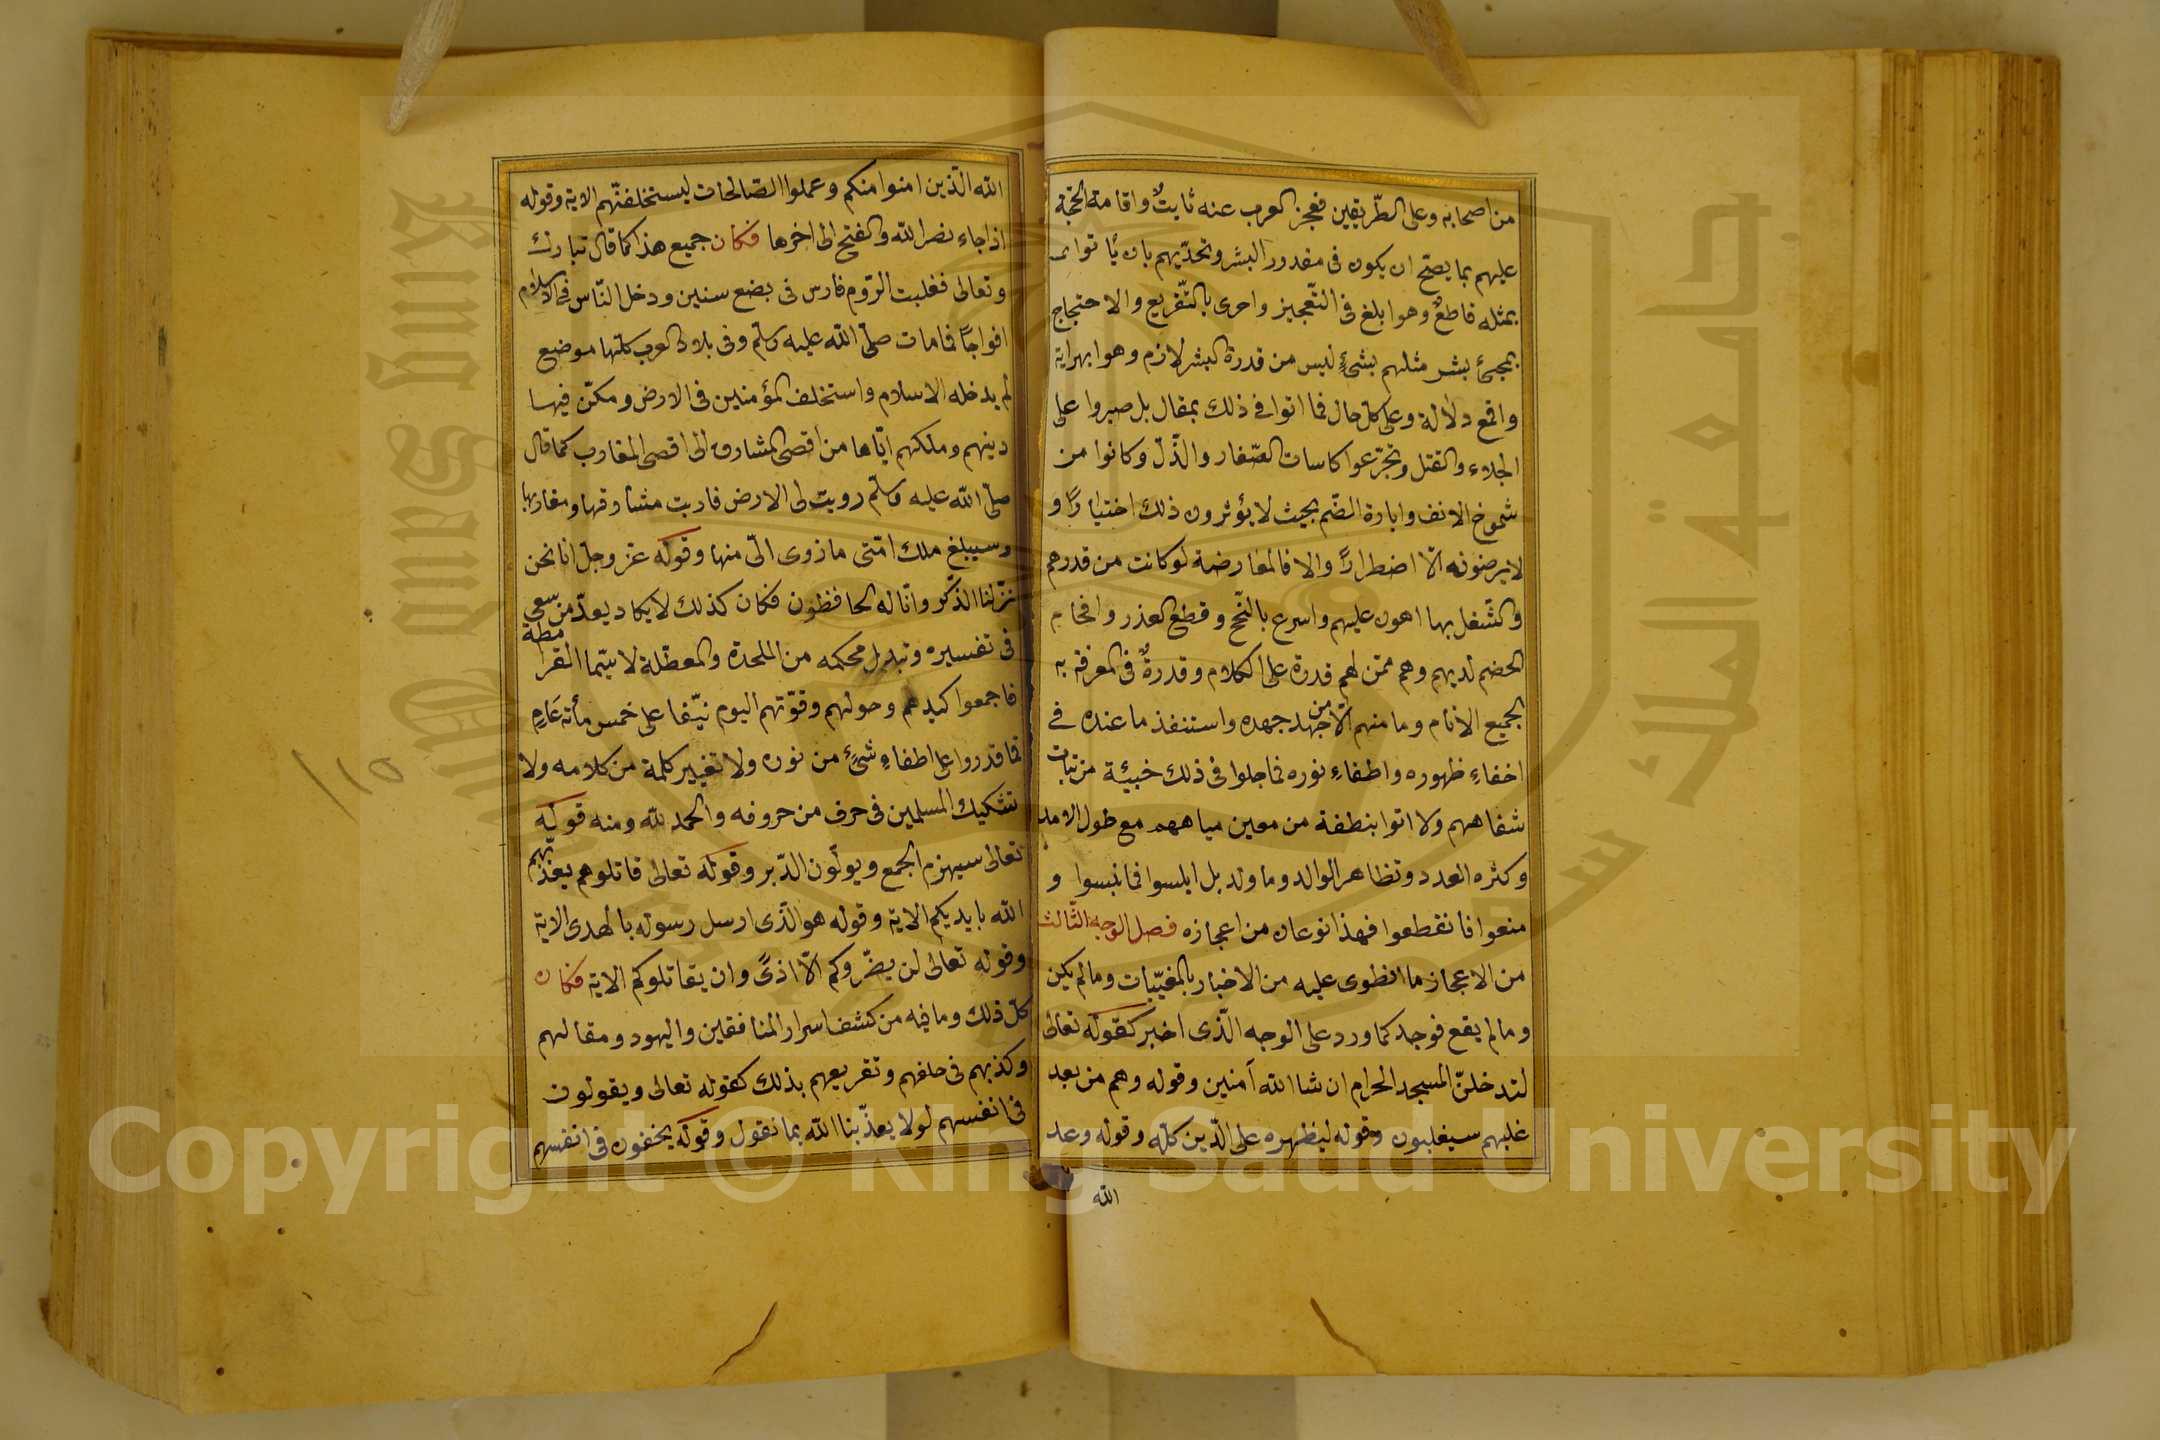 من اصحابه وعلى الطّريقين فعجز العرب عنه ثابتٌ واقامة الحجّة
عليهم بما يصحّ ان يكون فى مقدور البشر وتحدّيهم بان يأتوا
بمثله قاطعٌ وهو ابلغ فى التّعجيز واحرى بالتّقريع والاحتجاج
بمجئ بشر مثلهم بشئٍ ليس من قدرة البشر لازم وهو ابهر اية
واقمع دلالة وعلى كلّ حال فما اتوا فى ذلك بمقال بل صبروا على
الجلاء والقتل وتجرّعوا كاسات الصّغار والذّلّ وكانوا من
شموخ الانف واباءة الضّيم بحيث لا يؤثرون ذلك اختيارًا و
لا يرضونه الّا اضطرارًا والا فالمعارضة لو كانت من قدرهم
والشّغل بها اهون عليهم واسرع بالنّجح وقطع العذر وافحام
الخصم لديهم وهم ممّن لهم قدرة على الكلام وقدرةٌ فى المعرفة به
لجميع الانام وما منهم الّا من جهد جهده واستنفذ ما عنده فى
اخفاءِ ظهوره واطفاءِ نوره فما جلوا فى ذلك خبيئة من بنات
شفاههم ولا اتوا بنطفة من معين مياههم مع طول الامد
وكثره العدد وتظاهر الوالد وما ولد بل ابلسوا فما نبسوا و
منعوا فانقطعوا فهذا نوعان من اعجازه فصل الوجه الثّالث
من الاعجاز ما انطوى عليه من الاخبار بالمغيّبات وما لم يكن
وما لم يقع فوجد كما ورد على الوجه الّذى اخبر كقوله تعالى
لتدخلنّ المسجد الحرام ان شا الله آمنين وقوله وهم من بعد
غلبهم سيغلبون وقوله ليظهره على الدّين كلّه وقوله وعد
الله
الله الّذين امنوا منكم وعملوا الصّالحات ليستخلفنّهم الاية وقوله
اذا جاء نصر الله والفتح الى اخرها فكان جميع هذا كما قال تبارك
وتعالى فغلبت الرّوم فارس فى بضع سنين ودخل النّاس فى الاسلام
افواجًا فما مات صلّى الله عليه وسلّم وفى بلاد العرب كلّها موضع
لم يدخله الاسلام واستخلف المؤمنين فى الارض ومكّن فيها
دينهم وملكهم ايّاها من اقصى المشارق الى اقصى المغارب كما قال
صلّى الله عليه وسلّم زويت لى الارض فاريت مشارقها ومغاربها
وسيبلغ ملك امّتى ما زوى الىّ منها وقوله عزّ وجلّ انا نحن
نزّلنا الذّكر وانّا له لحافظون فكان كذلك لا يكاد يعدّ من سعى
فى تفسيره وتبديل محكمه من الملحدة والمعطّلة لا سيّما القرامطة
فاجمعوا كيدهم وحولهم وقوّتهم اليوم نيّفا على خمس مأئة عَامٍ
فما قدروا على اطفاءِ شئٍ من نوره ولا تغيير كلمة من كلامه ولا
تشكيك المسلمين فى حرف من حروفه والحمد لله ومنه قوله
تعالى سيهزم الجمع ويولّون الدّبر وقوله تعالى قاتلوهم يعذّبهم
الله بايديكم الاية وقوله هو الّذى ارسل رسوله بالهدى الاية
وقوله تعالى لن يضرّوكم الّا اذىً وان يقاتلوكم الاية فكان
كلّ ذلك وما فيه من كشف اسرار المنافقين واليهود ومقالهم
وكذبهم فى حلفهم وتقريعهم بذلك كقوله تعالى ويقولون
فى انفسهم لولا يعذّبنا الله بما نقول وقوله يخفون فى انفسهم
١١٥
جامعة الملك سعود
King Saud University
Copyright © King Saud University